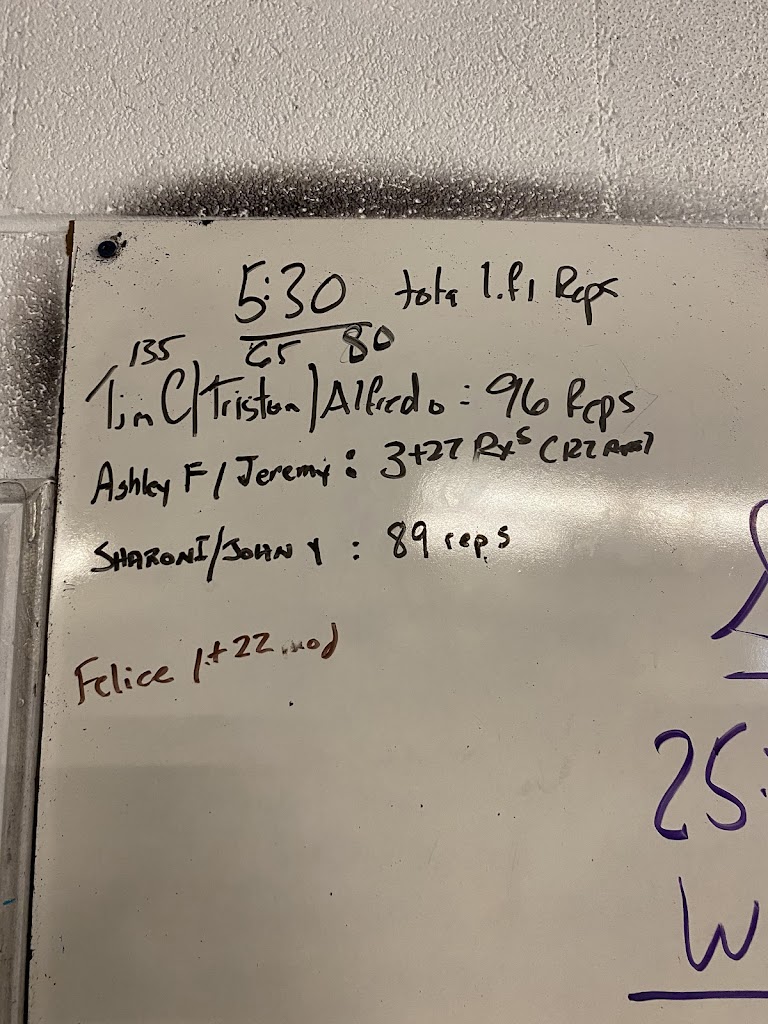 5:30 Reps
135 65 80
Tim C/Triston/Alfredo: 96 Reps
Ashley F/Jeremy: 3+27 Rx
SHARONI/JOHN Y : 89 reps
Felice 1+22 mod
25:
W